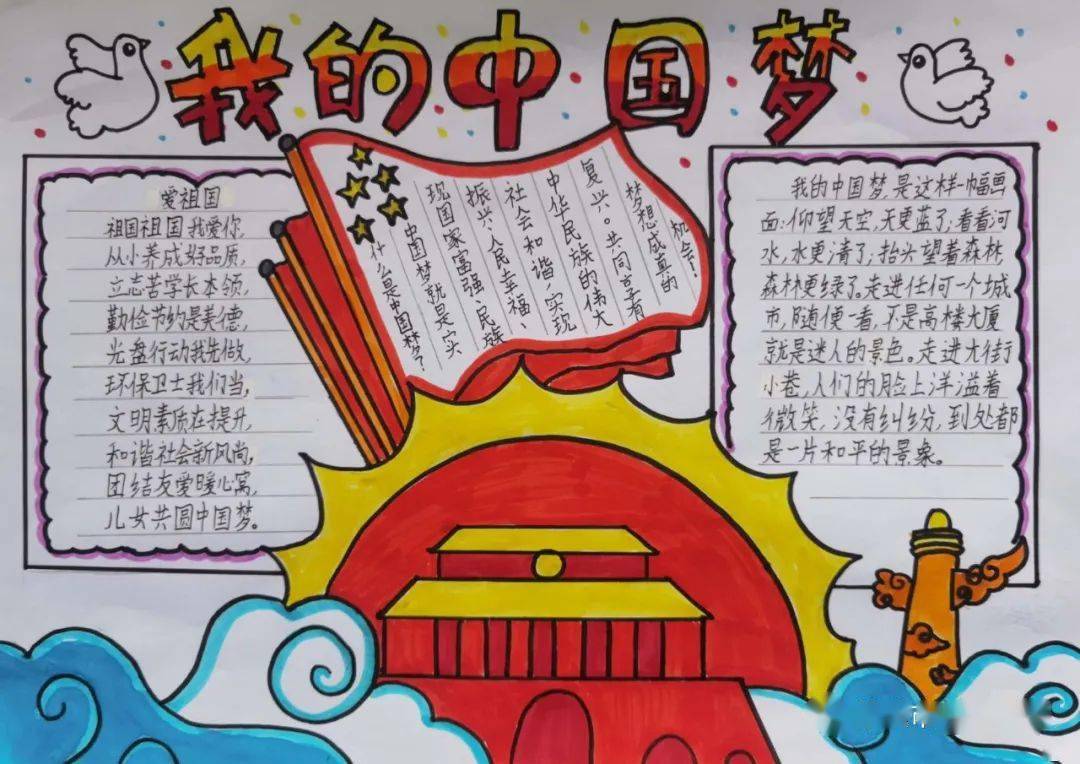 我的中国梦
爱祖国
祖国祖国我爱你,
从小养成好品质,
立志苦学长本领,
勤俭节约是美德,
光盘行动我先做,
环保卫士我们当,
文明素质在提升,
和谐社会新风尚,
团结友爱暖心窝,
儿女共圆中国梦。
什么是中国梦?
中国梦就是实
现国家富强、民族
振兴、人民幸福、
社会和谐,实现
中华民族的伟大
复兴。共同享有
梦想成真的
机会!
我的中国梦,是这样一幅画
面:仰望天空,天更蓝了;看看河
水,水更清了;抬头望着森林,
森林更绿了。走进任何一个城
市,随便一看,不是高楼大厦
就是迷人的景色。走进大街
小巷,人们的脸上洋溢着
微笑,没有纠纷,到处都
是一片和平的景象。